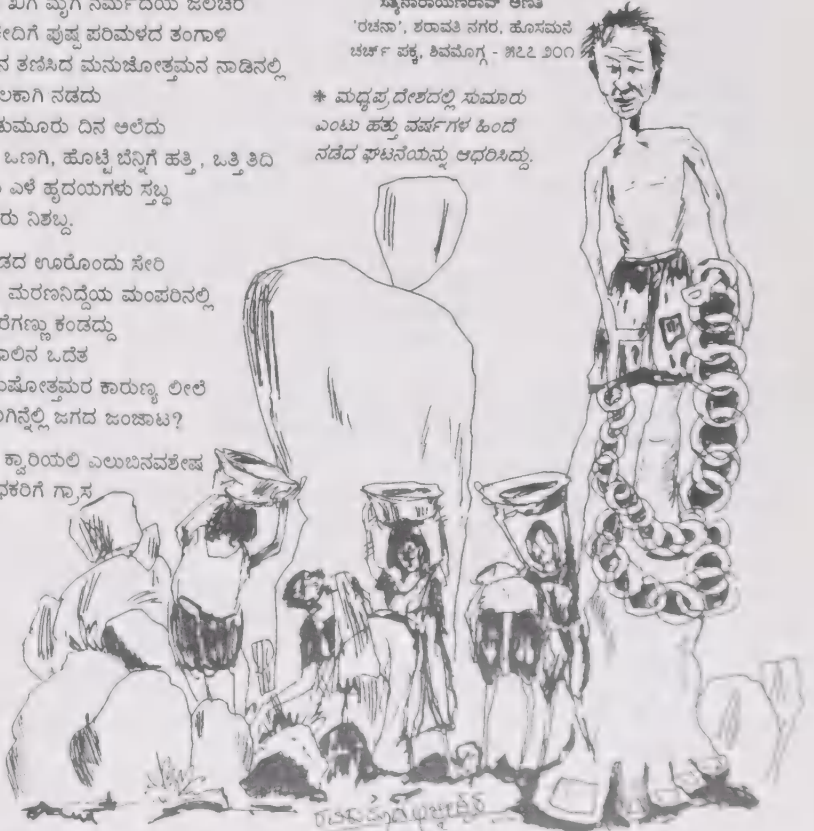 ಖಗ ಮೃಗ ನರ್ಮದೆಯ ಜಲಚರ
ಪುಷ್ಪ ಪರಿಮಳದ ತಂಗಾಳಿ
ತಣಿಸಿದ ಮನುಜೋತ್ತಮನ ನಾಡಿನಲ್ಲಿ
ನಡೆದು
ದಿನ ಅಲೆದು
ಒಣಗಿ, ಹೊಟ್ಟೆ ಬೆನ್ನಿಗೆ ಹತ್ತಿ, ಒತ್ತಿ ತಿದಿ
ಎಳೆ ಹೃದಯಗಳು ಸ್ತಬ್ಧ
ನಿಶಬ್ದ.
ಊರೊಂದು ಸೇರಿ
ಮರಣನಿದ್ದೆಯ ಮಂಪರಿನಲ್ಲಿ
ಕಂಡದ್ದು
ಒದೆತ
ಕಾರುಣ್ಯ ಲೀಲೆ
ಜಗದ ಜಂಜಾಟ?
ಕ್ವಾರಿಯಲಿ ಎಲುಬಿನವಶೇಷ
ಗ್ರಾಸ
'ರಚನಾ', ಶರಾವತಿ ನಗರ, ಹೊಸಮನೆ
ಚರ್ಚ್ ಪಕ್ಕ, ಶಿವಮೊಗ್ಗ - ೫೭೭ ೨೦೧
* ಮಧ್ಯಪ್ರದೇಶದಲ್ಲಿ ಸುಮಾರು
ಎಂಟು ಹತ್ತು ವರ್ಷಗಳ ಹಿಂದೆ
ನಡೆದ ಘಟನೆಯನ್ನು ಆಧರಿಸಿದ್ದು.